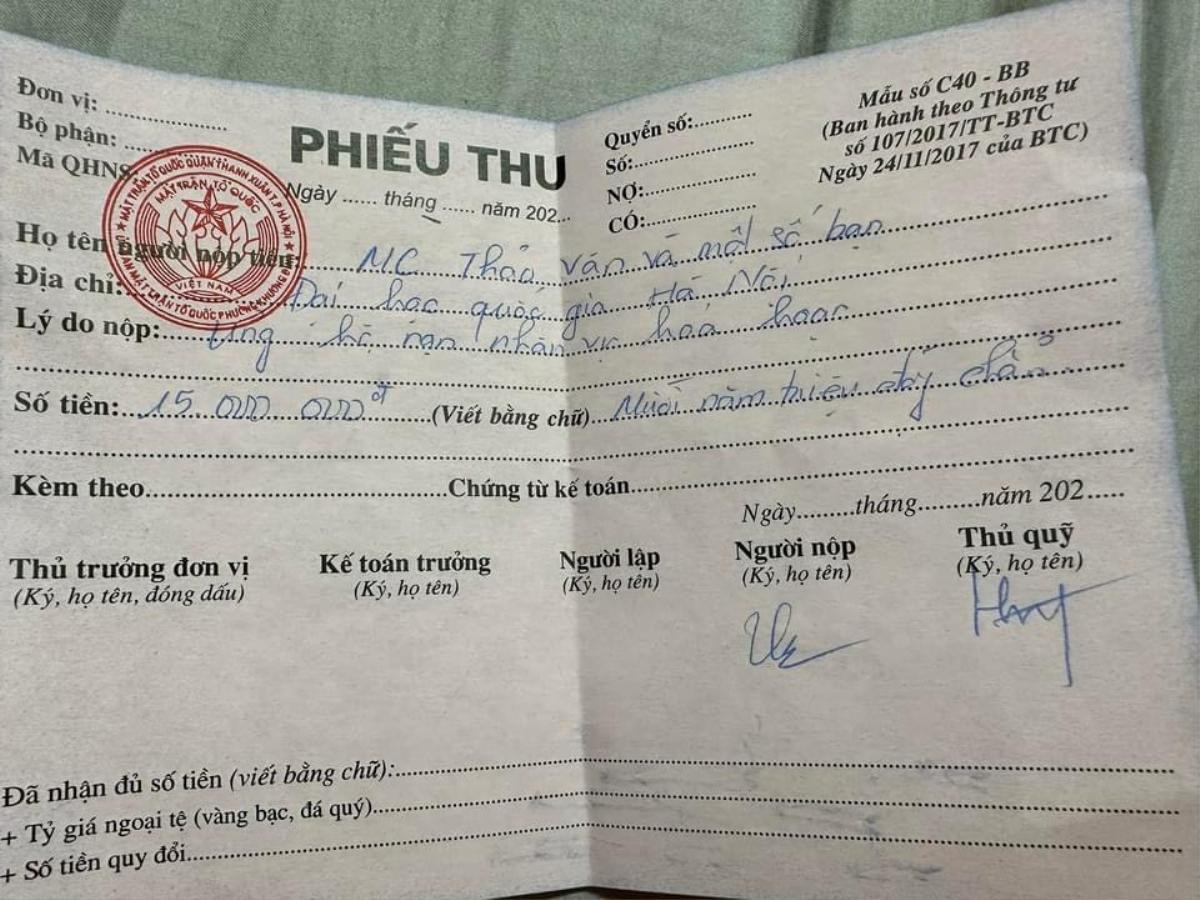 Đơn vị: ....................
Bộ phận: ....................
Mã QHNS
PHIẾU THU
Ngày ...... tháng ...... năm 202...
Quyển số:..........
Số:....................
NỢ:....................
CÓ:....................
Mẫu số C40 - BB
(Ban hành theo Thông tư
số 107/2017/TT-BTC
Ngày 24/11/2017 của BTC)
MẶT TRẬN TỔ QUỐC QUẬN THANH XUÂN T.P HÀ NỘI
MẶT TRẬN TỔ QUỐC
VIỆT NAM
BAN MẶT TRẬN TỔ QUỐC PHƯỜNG KHƯƠNG
Họ tên người nộp tiền: MC Thảo Vân và một số bạn
Địa chỉ: Đại học quốc gia Hà Nội
Lý do nộp: Ủng hộ nạn nhân vụ hoả hoạn
Số tiền: 15 000 000đ (Viết bằng chữ) Mười năm triệu đồng chẵn
Kèm theo....................Chứng từ kế toán....................
Ngày.........tháng.........năm 202.....
Thủ trưởng đơn vị Kế toán trưởng Người lập Người nộp Thủ quỹ
(Ký, họ tên, đóng dấu) (Ký, họ tên) (Ký, họ tên) (Ký, họ tên) (Ký, họ tên)
Đã nhận đủ số tiền (viết bằng chữ):....................
+ Tỷ giá ngoại tệ (vàng bạc, đá quý)....................
+ Số tiền quy đổi....................